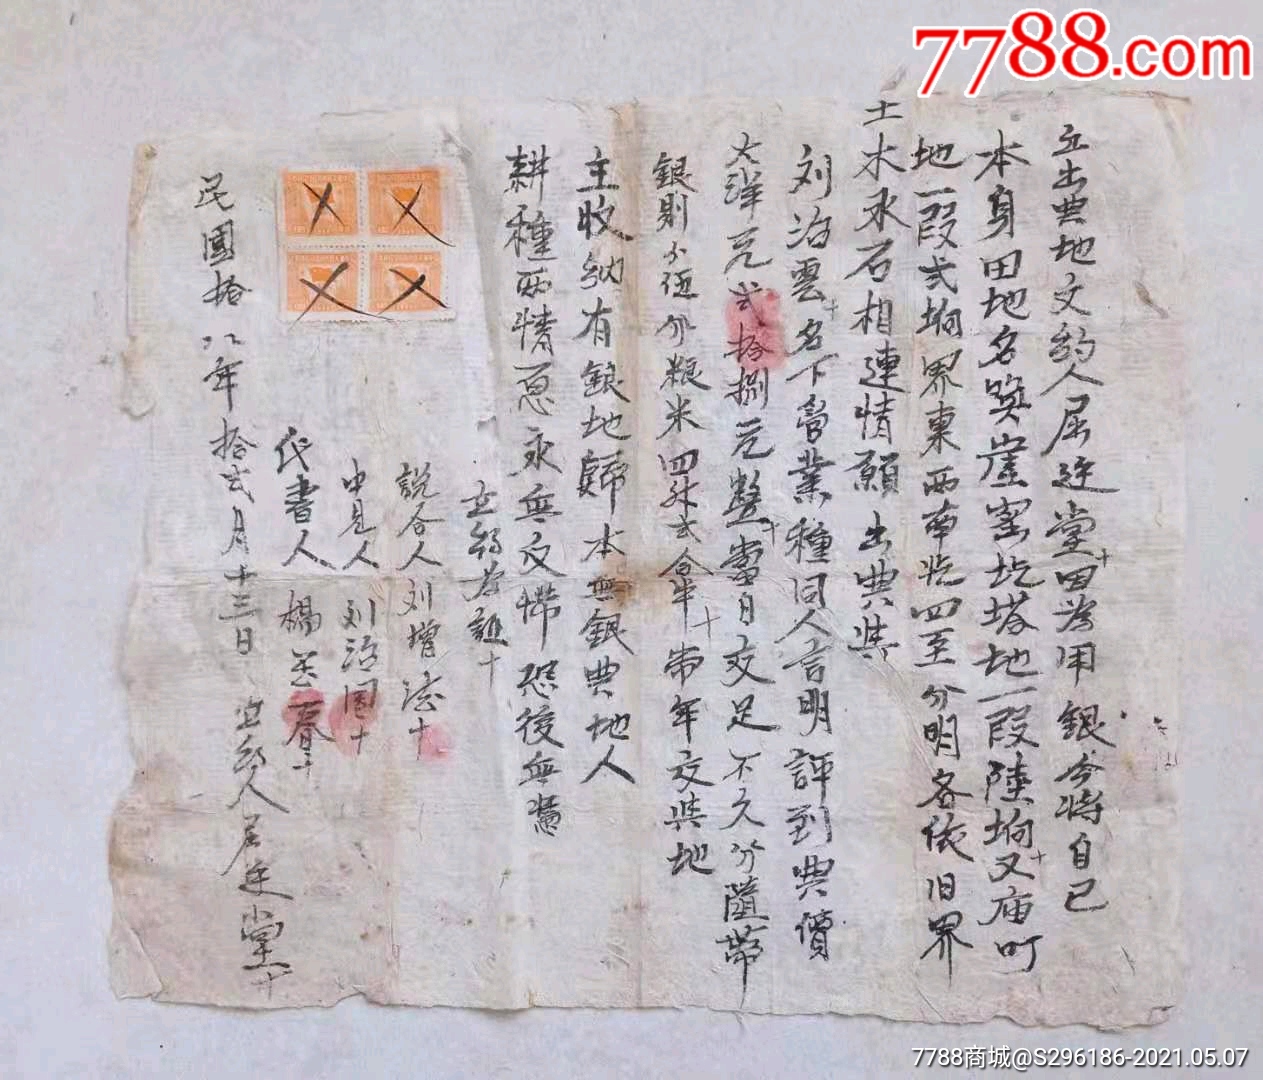 7788.com
立出典地文約人屈廷堂因為用銀今將自己
本身田地名喚崖窑圪塔地一段陸垧又庙
地一段弍垧界東西南北四至分明各依旧界
土木水石相連情願出典與
刘治雲名下管業種同人言明評到典價
大洋元弍拾捌元整當日交足不欠分隨帶
銀則分伍分粮米四升弍合半常年交與地
主收納有銀地歸本無銀典地人
耕種两情愿永無反悔恐後無憑
立約為証十
説合人刘增 十
中見人刘治國十
代書人楊 春十
民國拾八年拾弍月十三日立約人屈廷堂十
7788商城@S296186-2021.05.07